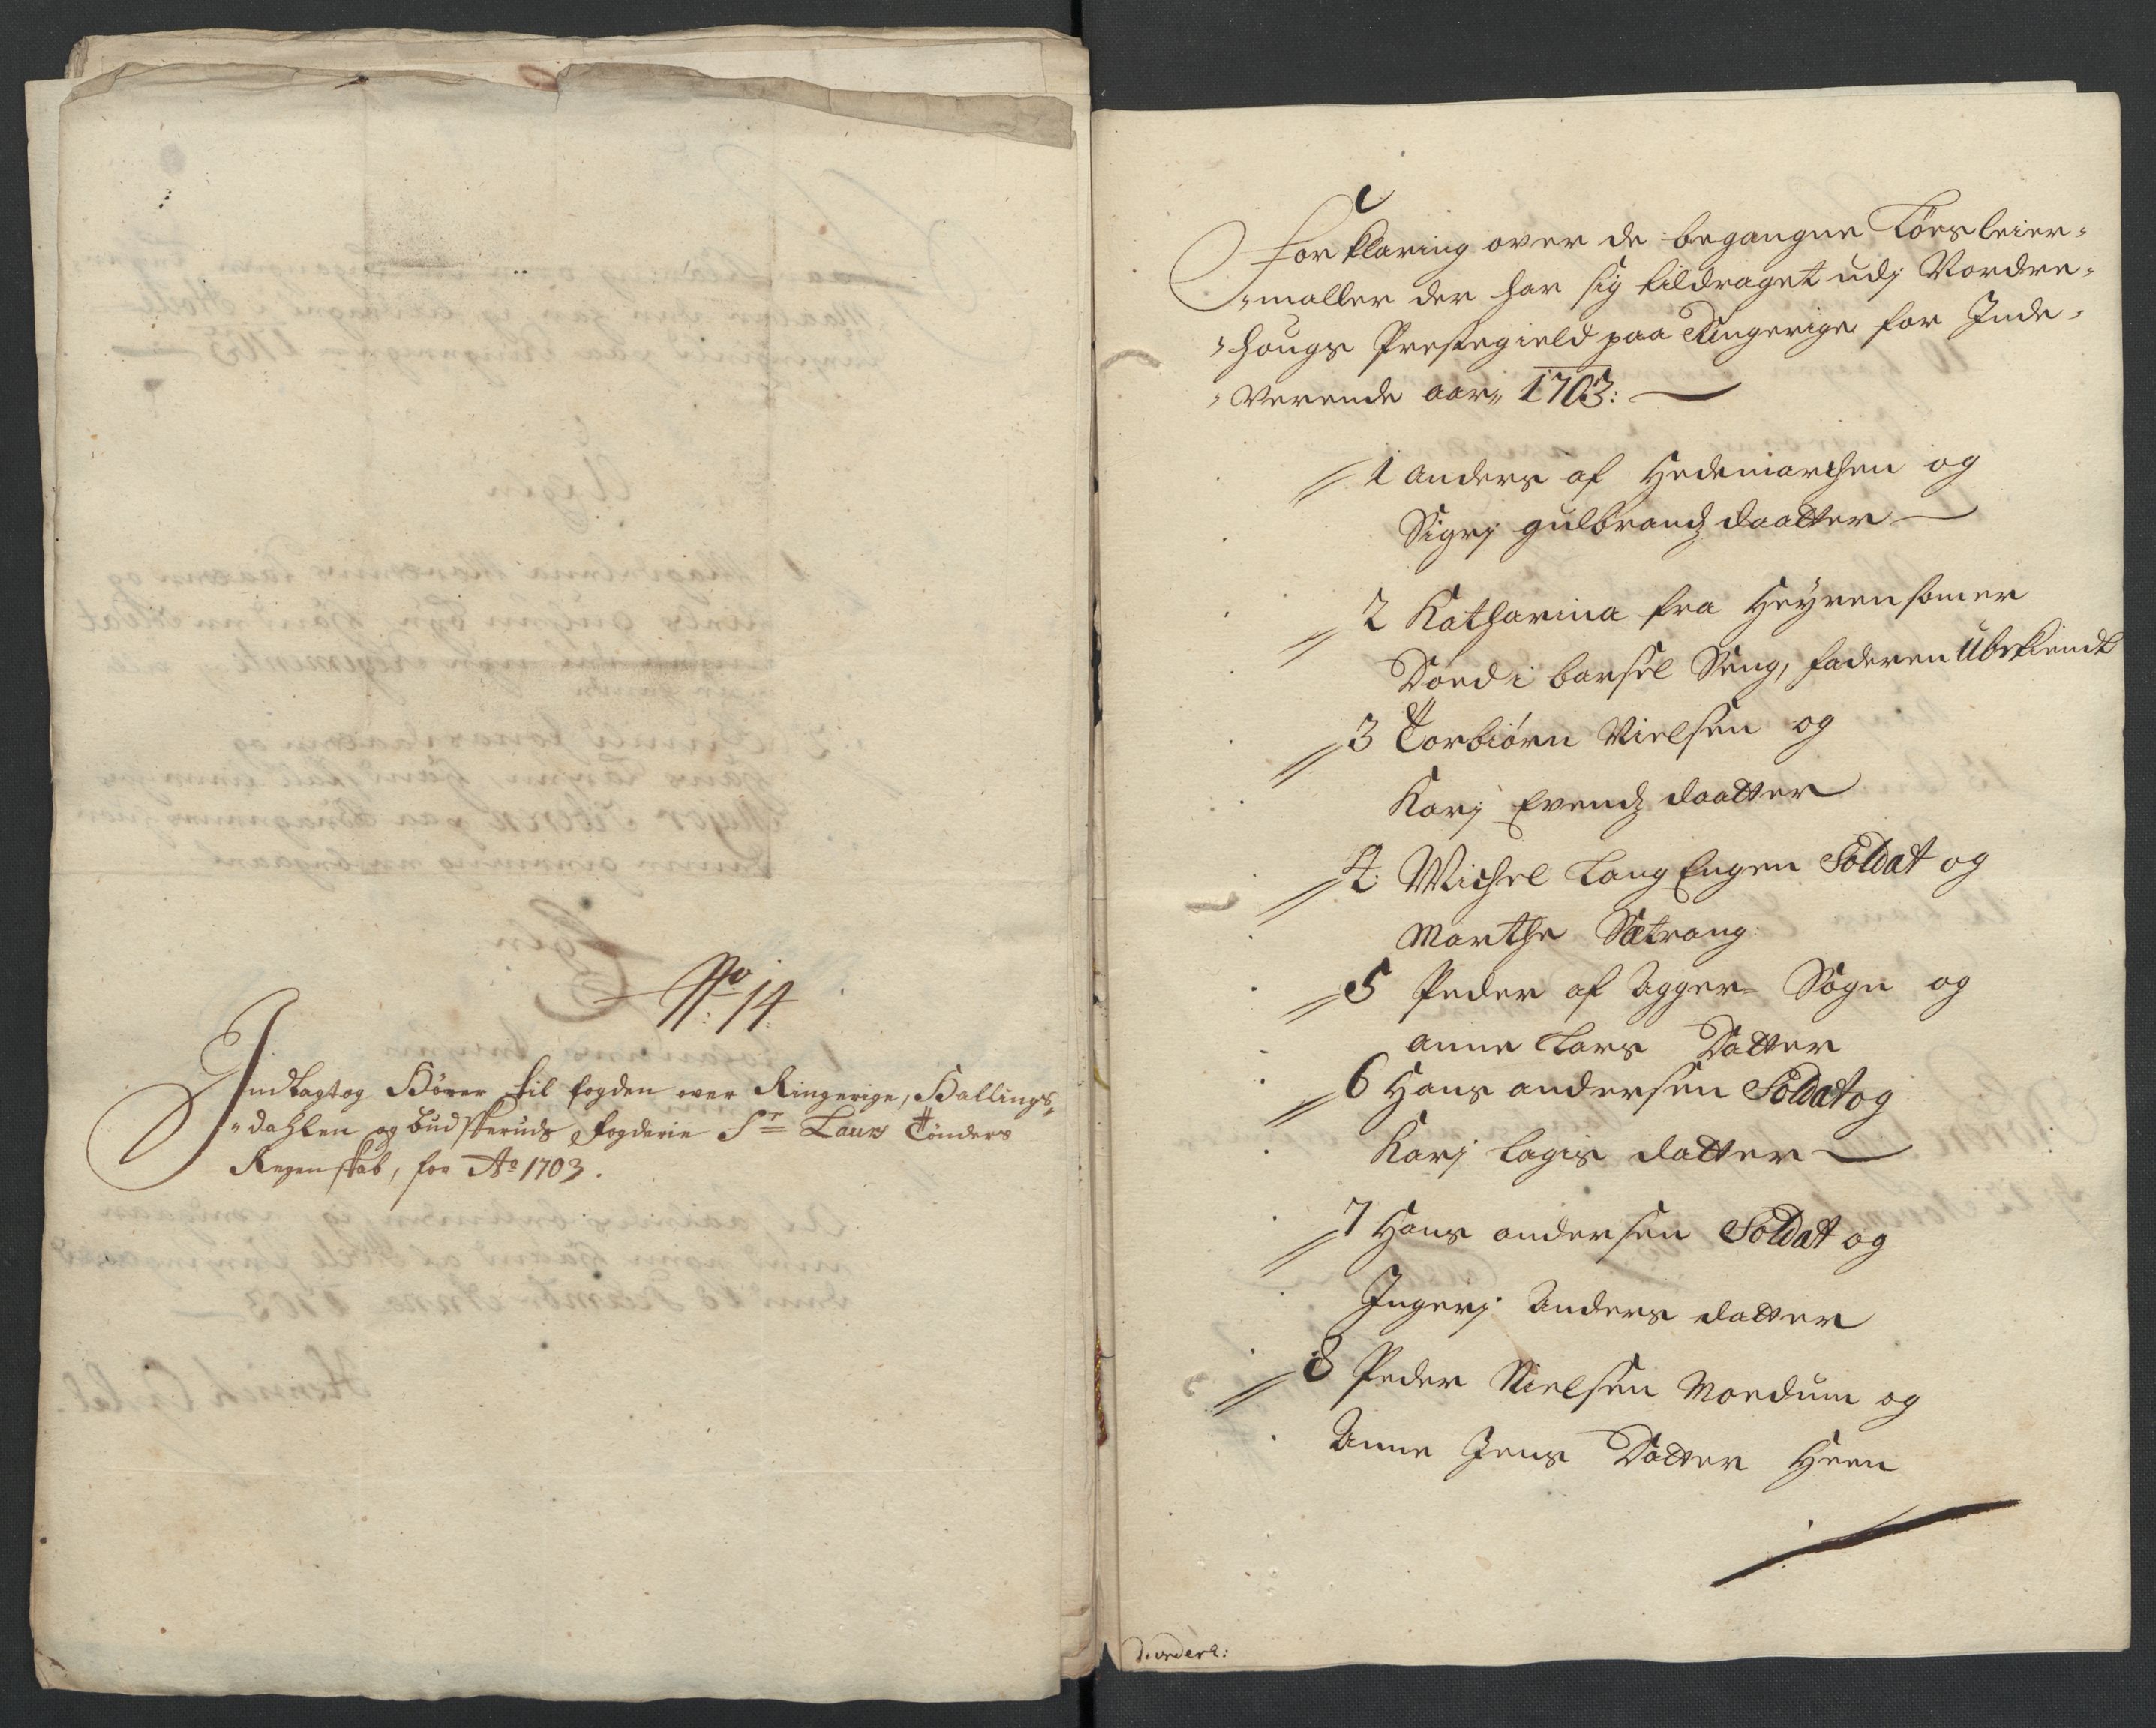 No 14
Indlagt og Hører til fogden over Ringerige, Hallings,
"dahlen og Budskeruds fogderie Sr Laurs Tønders
Regenskab, for Ao 1703.
Forklaring over de begangne Løesleier-
"maller der har sig tildraget udj Nordre-
"hougs Prestegield paa Ringerige for Inde-
"Verende aar" 1703:
1 Anders af Hedemarchen og
Sigrj gulbrandz daatter
2 Katharina fra Heyren som er
Doed i barsel Seng, faderen Ubekiendt
3 Torbiørn Nielsen og
Karj Evendz daatter
4: Michel Lang Engen Soldat og
Marthe Sætrang:
5 Peder af Agger- Sogn og
Anne Lars Datter
6 Hans andersen Soldat og
Karj Lagis datter
7 Hans andersen Soldat og
Ingerj Anders datter
8 Peder Nielsen Moedum og
Anne Jens Datter Heen